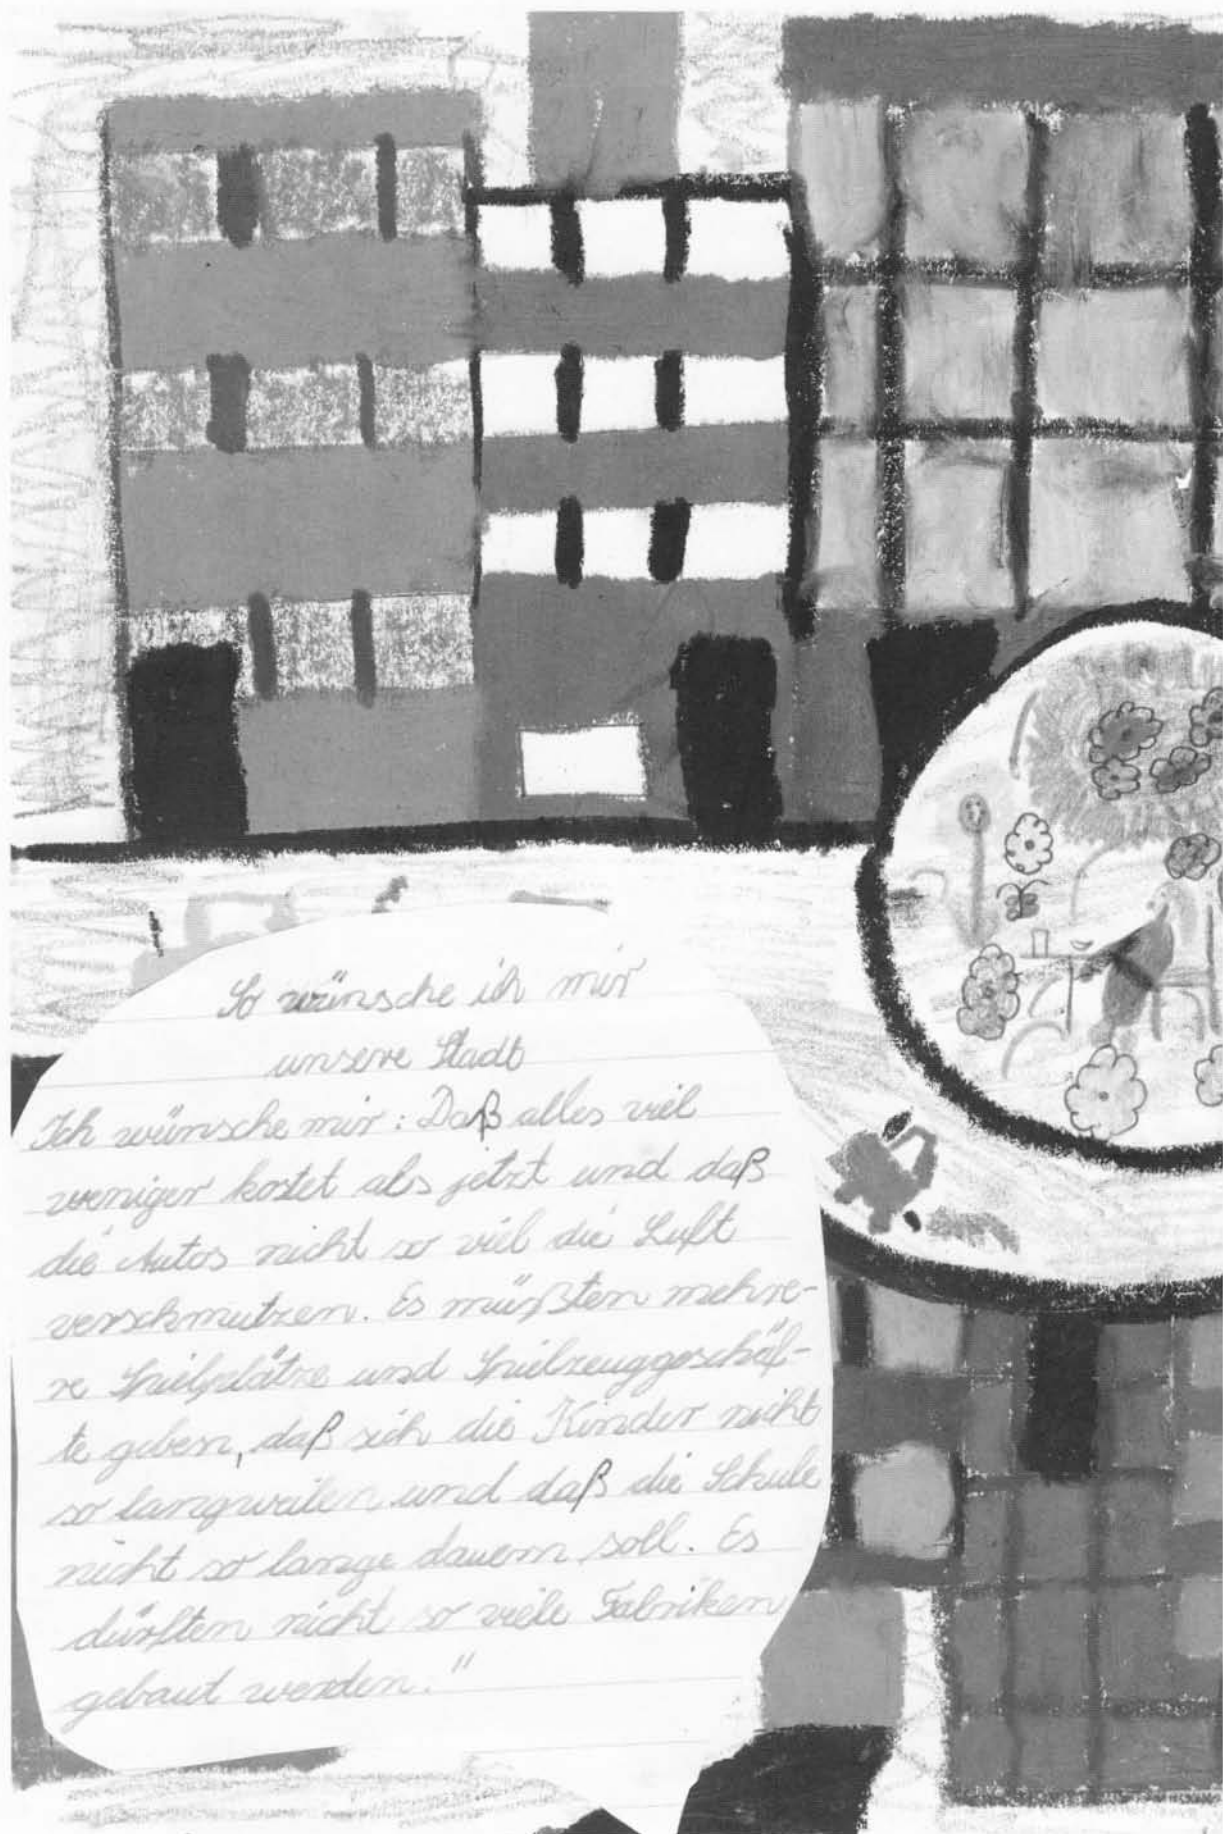 So wünsche ich mir
unsere Stadt
Ich wünsche mir: Daß alles viel
weniger kostet als jetzt und daß
die Autos nicht so viel die Luft
verschmutzen. Es müßten mehre-
re Spielplätze und Spielzeuggeschäf-
te geben, daß sich die Kinder nicht
so langweilen und daß die Schule
nicht so lange dauern soll. Es
dürften nicht so viele Fabriken
gebaut werden."